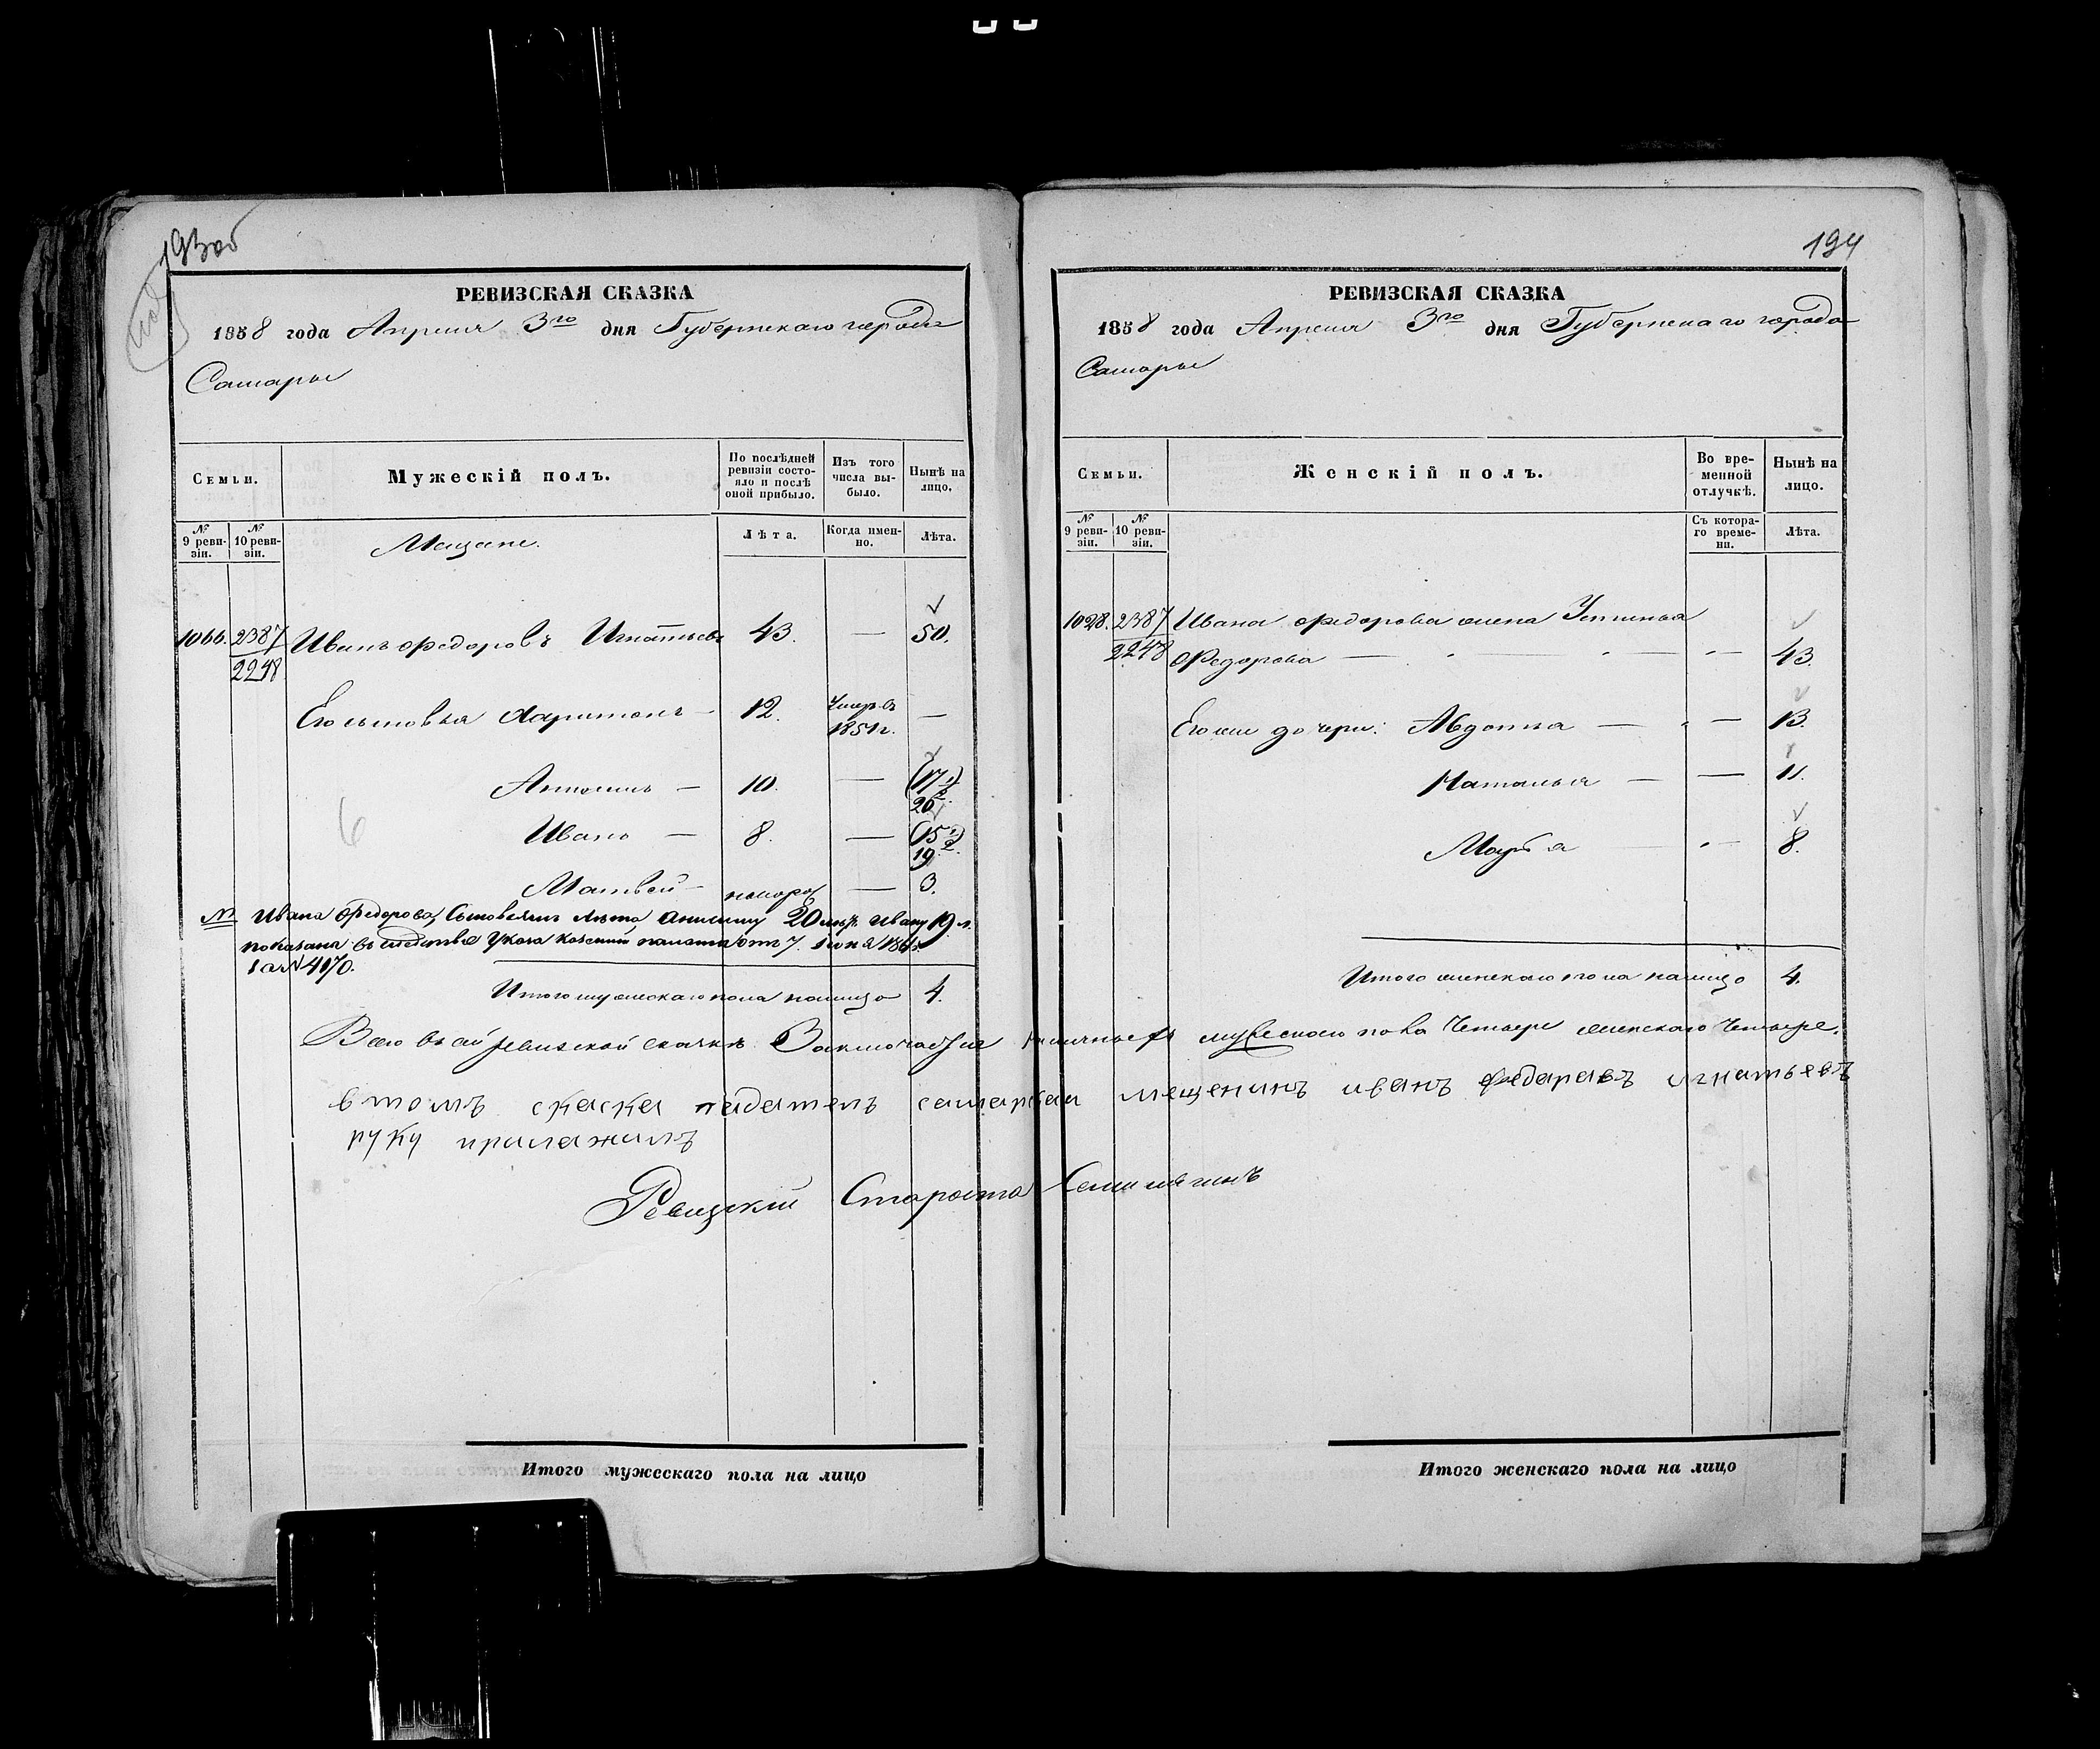 193об
РЕВИЗСКАЯ СКАЗКА
1858 года Апреля 3го дня Губернскаго города
Самары
Семьи.
Мужескій полъ.
По послѣдней ревизіи состояло и послѣ оной прибыло.
Изъ того числа выбыло.
Нынѣ на лицо.
№ 9 ревизіи.
№ 10 ревизіи.
Мещане.
Лѣта.
Когда именно.
Лѣта.
1066. 2387 Иванъ Федоровъ Игнатьевъ 43. — 50.
2248
Его сыновья Харитонъ — 12. Умеръ въ 1851г. —
Анисимъ — 10. — (17 1/2) 20
Иванъ — 8. — (15 1/2) 19.
6
Матвей — новорож — 3.
№ Ивана Федорова, Сыновьямъ лѣта, Анисиму 20 Ивану 19 л.
показана въ следствие Указа Казенной палаты отъ 7. 186
за № 4170.
Итого мужескаго пола налицо 4.
194
РЕВИЗСКАЯ СКАЗКА
1858 года Апреля 3го дня Губернскаго города
Самары
Семьи.
Женскій полъ.
Во временной отлучкѣ.
Нынѣ на лицо.
№ 9 ревизіи.
№ 10 ревизіи.
Съ котораго времени.
Лѣта.
1028. 2387 Ивана Федорова жена Устинья
2248 Федорова — — — 43.
Его же дочери: Авдотья — — 13.
Наталья — — 11.
Марья — 8.
Итого женскаго пола налицо 4.
Всего въ сей ревизской сказке Заключается наличныхъ мужескаго пола Четыре женскаго Четыре.
в томъ скаска падатель самарскаи мещенинъ иванъ федаравъ игнатьевъ
руку прилажилъ
Ревизский Староста
Итого мужескаго пола на лицо
Итого женскаго пола на лицо